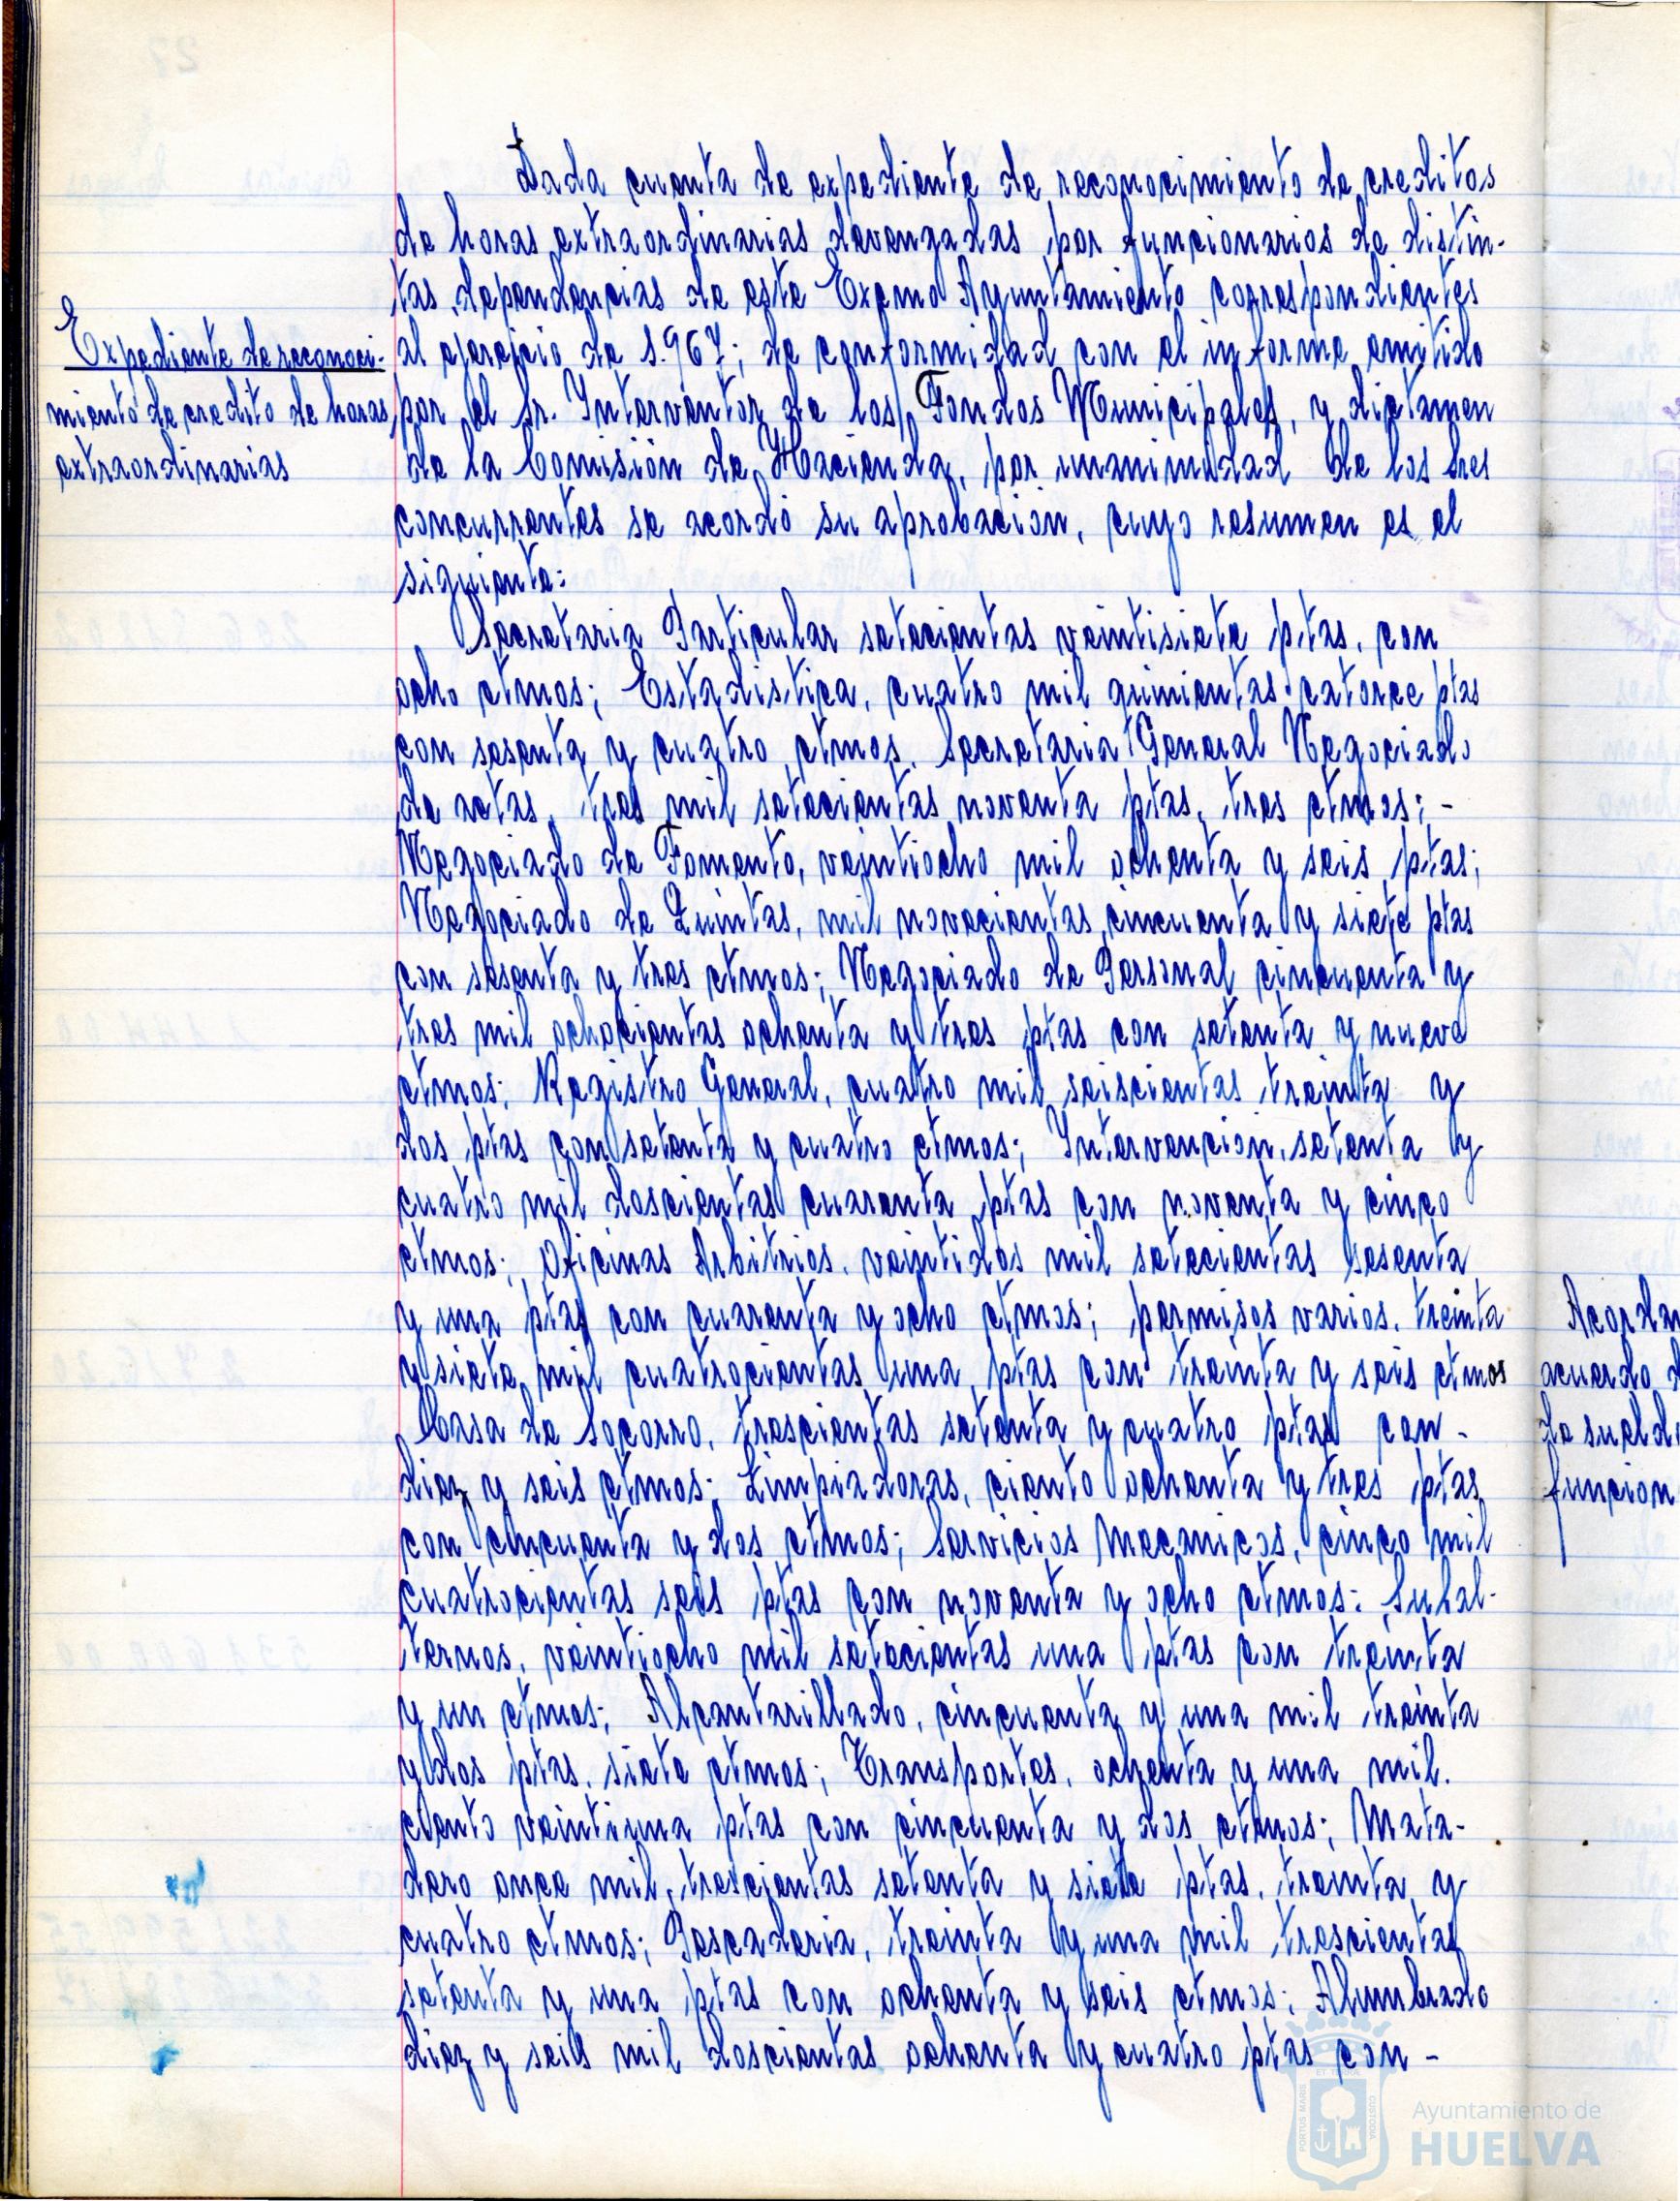 Dada cuenta de expediente de reconocimiento de creditos
de horas extraordinarias devengadas por funcionarios de distin-
tas dependencias de este Excmo Ayuntamiento correspondientes
Expediente de reconoci-
miento de credito de horas
extraordinarias
al ejercicio de 1.967; de conformidad con el informe emitido
por el Sr. Interventor de los Fondos Municipales, y dictamen
de la Comisión de Hacienda, por unanimidad de los Sres
concurrentes se acordó su aprobación, cuyo resumen es el
siguiente:
Secretaria Particular setecientas veintisiete ptas, con
ocho ctmos; Estadistica, cuatro mil quinientas catorce ptas
con sesenta y cuatro ctmos. Secretaria General Negociado
de actas, tres mil setecientas noventa ptas, tres ctmos; -
Negociado de Fomento, veintiocho mil ochenta y seis ptas;
Negociado de Quintas, mil novecientas cincuenta y siete ptas
con sesenta y tres ctmos; Negociado de Personal cincuenta y
tres mil ochocientas ochenta y tres ptas con setenta y nueve
ctmos; Registro General, cuatro mil seiscientas treinta y
dos ptas con setenta y cuatro ctmos; Intervencion, setenta y
cuatro mil doscientas cuarenta ptas con noventa y cinco
ctmos; Oficinas Arbitrios, veintidos mil setecientas sesenta
y una ptas con cuarenta y ocho ctmos; permisos varios, treinta
y siete mil cuatrocientas una ptas con treinta y seis ctmos
Casa de Socorro, trescientas setenta y cuatro ptas con -
diez y seis ctmos; Limpiadoras, ciento ochenta y tres ptas
con cincuenta y dos ctmos; Servicios Mecanicos, cinco mil
cuatrocientas seis ptas con noventa y ocho ctmos; Subal-
ternos, veintiocho mil setecientas una ptas con treinta
y un ctmos; Alcantarillado, cincuenta y una mil treinta
y dos ptas, siete ctmos; Transportes, ochenta y una mil.
ciento veintiuna ptas con cincuenta y dos ctmos; Mata-
dero once mil, trescientas setenta y siete ptas, treinta y
cuatro ctmos; Pescaderia, treinta y una mil trescientas
setenta y una ptas con ochenta y seis ctmos; Alumbrado
diez y seis mil doscientas ochenta y cuatro ptas con -
Acordar
acuerdo d
de sueldo
funcion
Ayuntamiento de
HUELVA